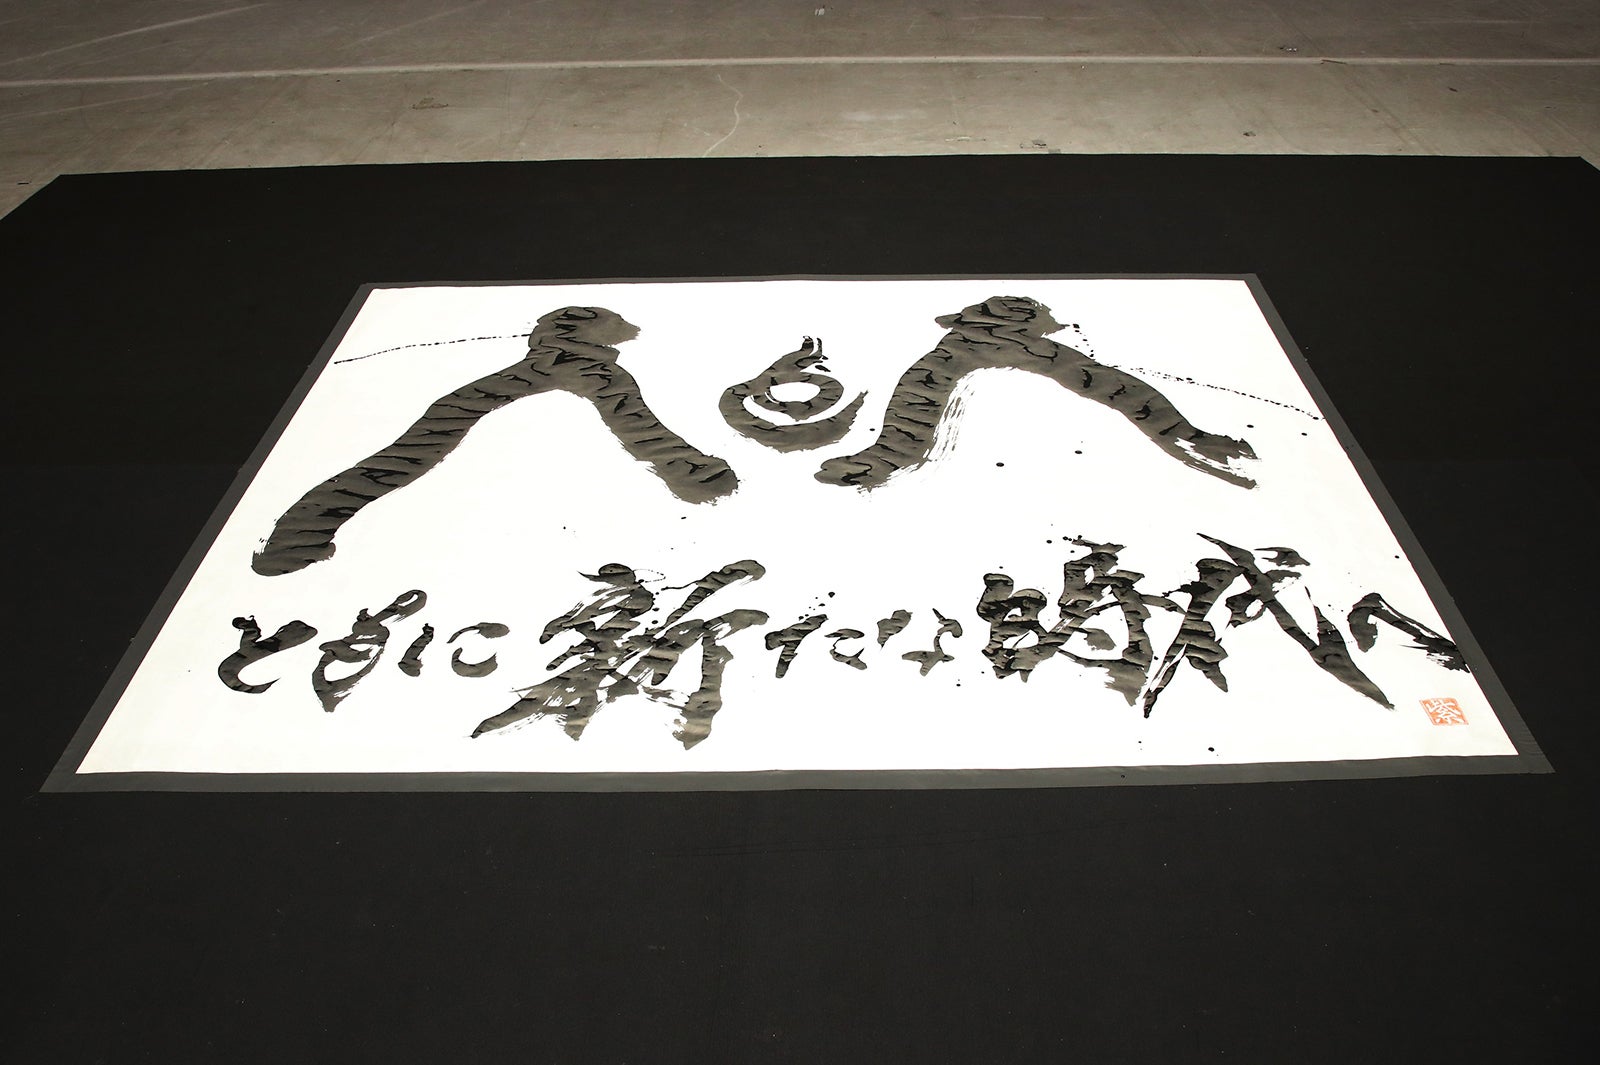 人 人
ともに新たな時代へ
紫